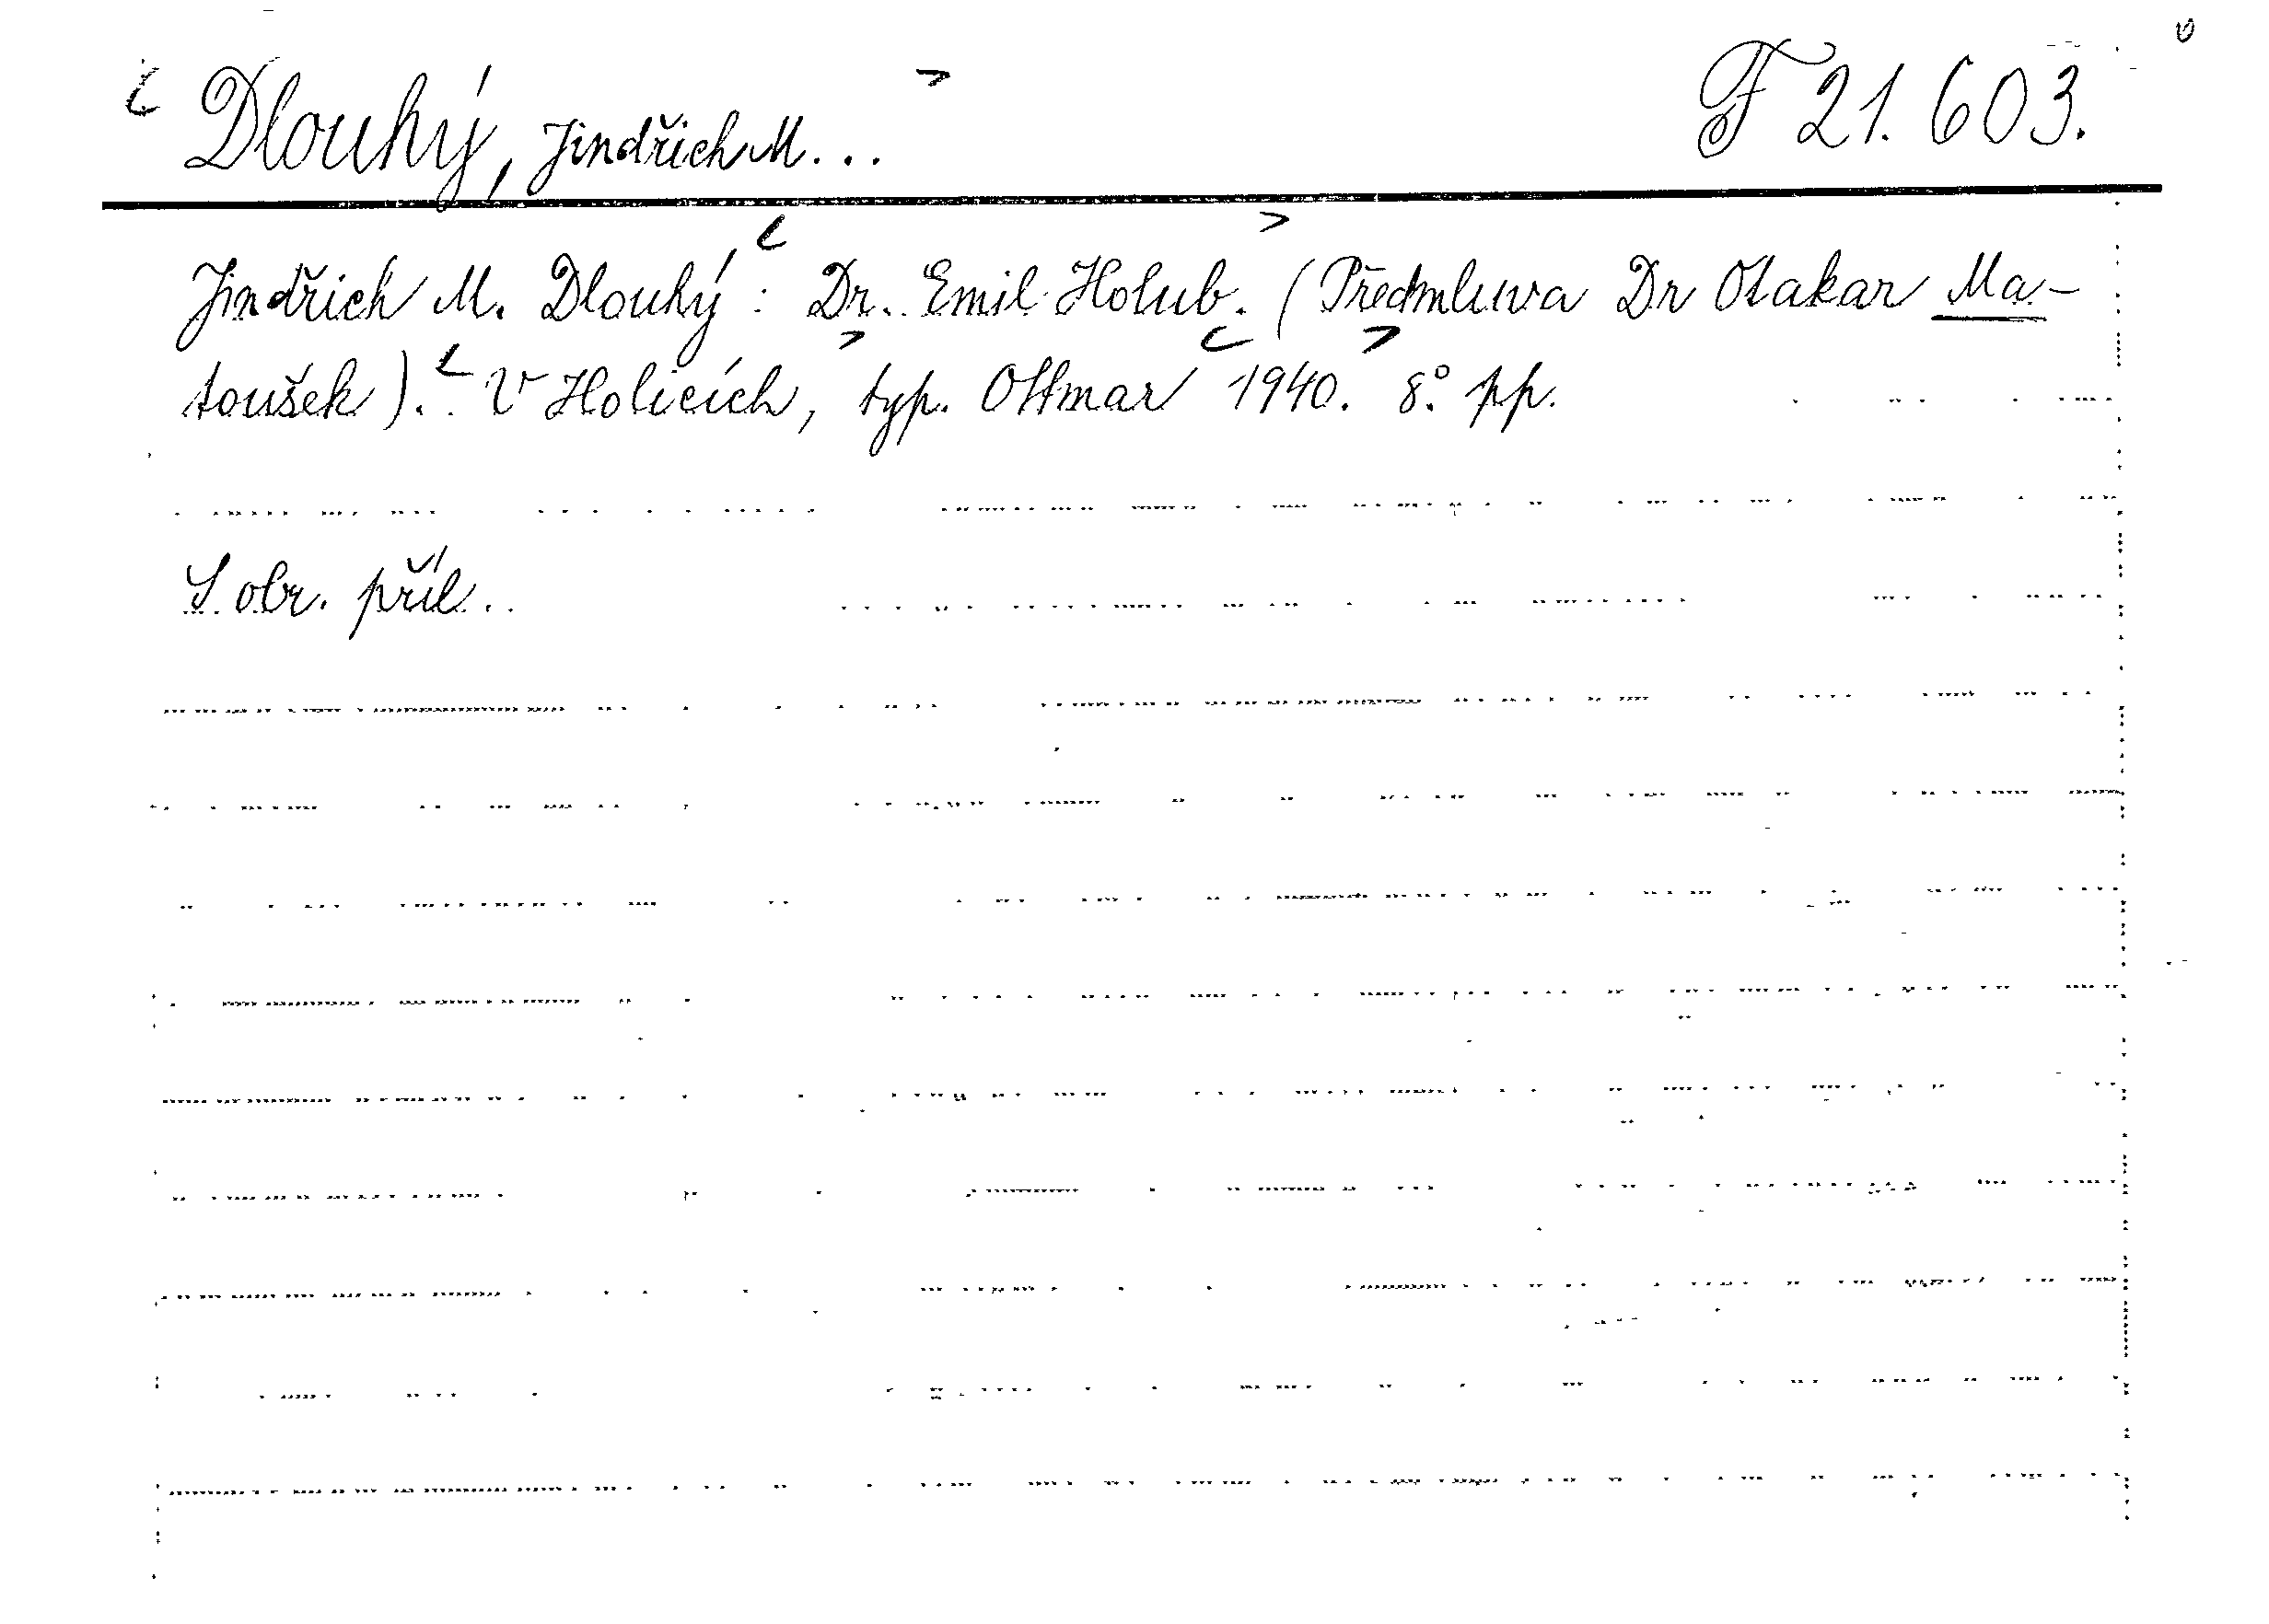 < Dlouhý, Jindřich M... > F 21.603.
Jindřich M. Dlouhý: < Dr. Emil Holub. > (Předmluva Dr Otakar Ma-
toušek). < V Holicích, > typ. Ottmar < 1940. > 8° pp.
S obr. příl.